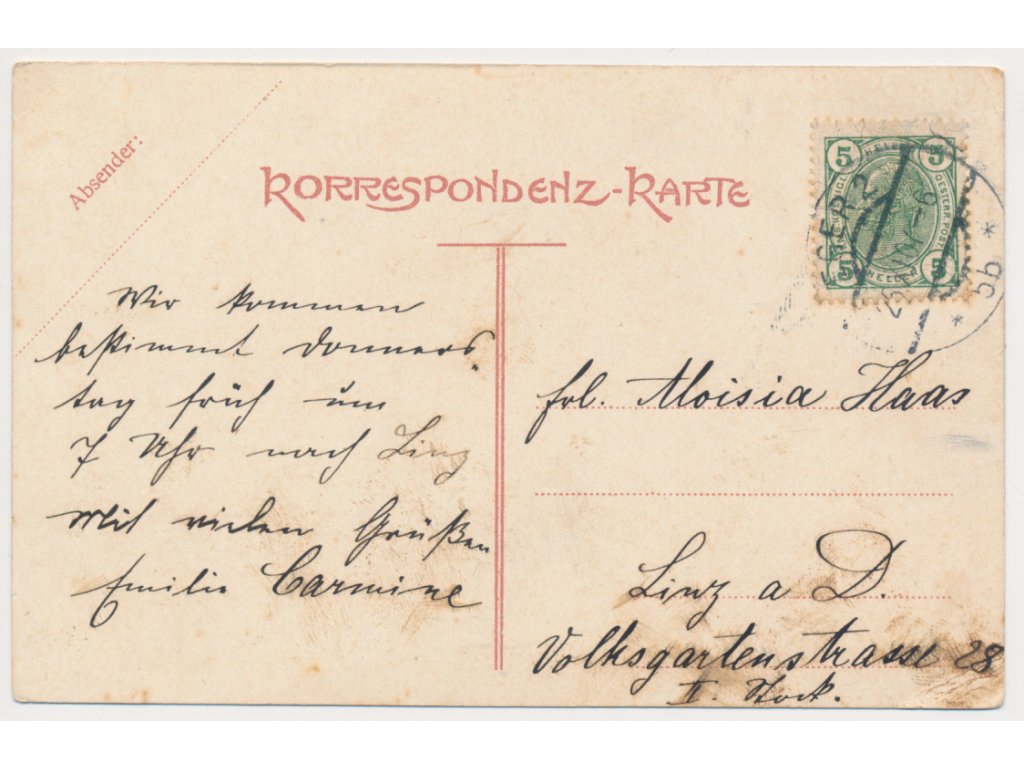 Absender:
KORRESPONDENZ-KARTE
5 HELLER 5
OESTERR. POST.
5 HELLER 5
EGER 2
5b
Wir kommen
bestimmt Donners
tag früh um
7 Uhr nach Linz
Mit vielen Grüßen
Emilie Carmine
frl. Aloisia Haas
Linz a D.
Volksgartenstrasse 28
II. Stock.